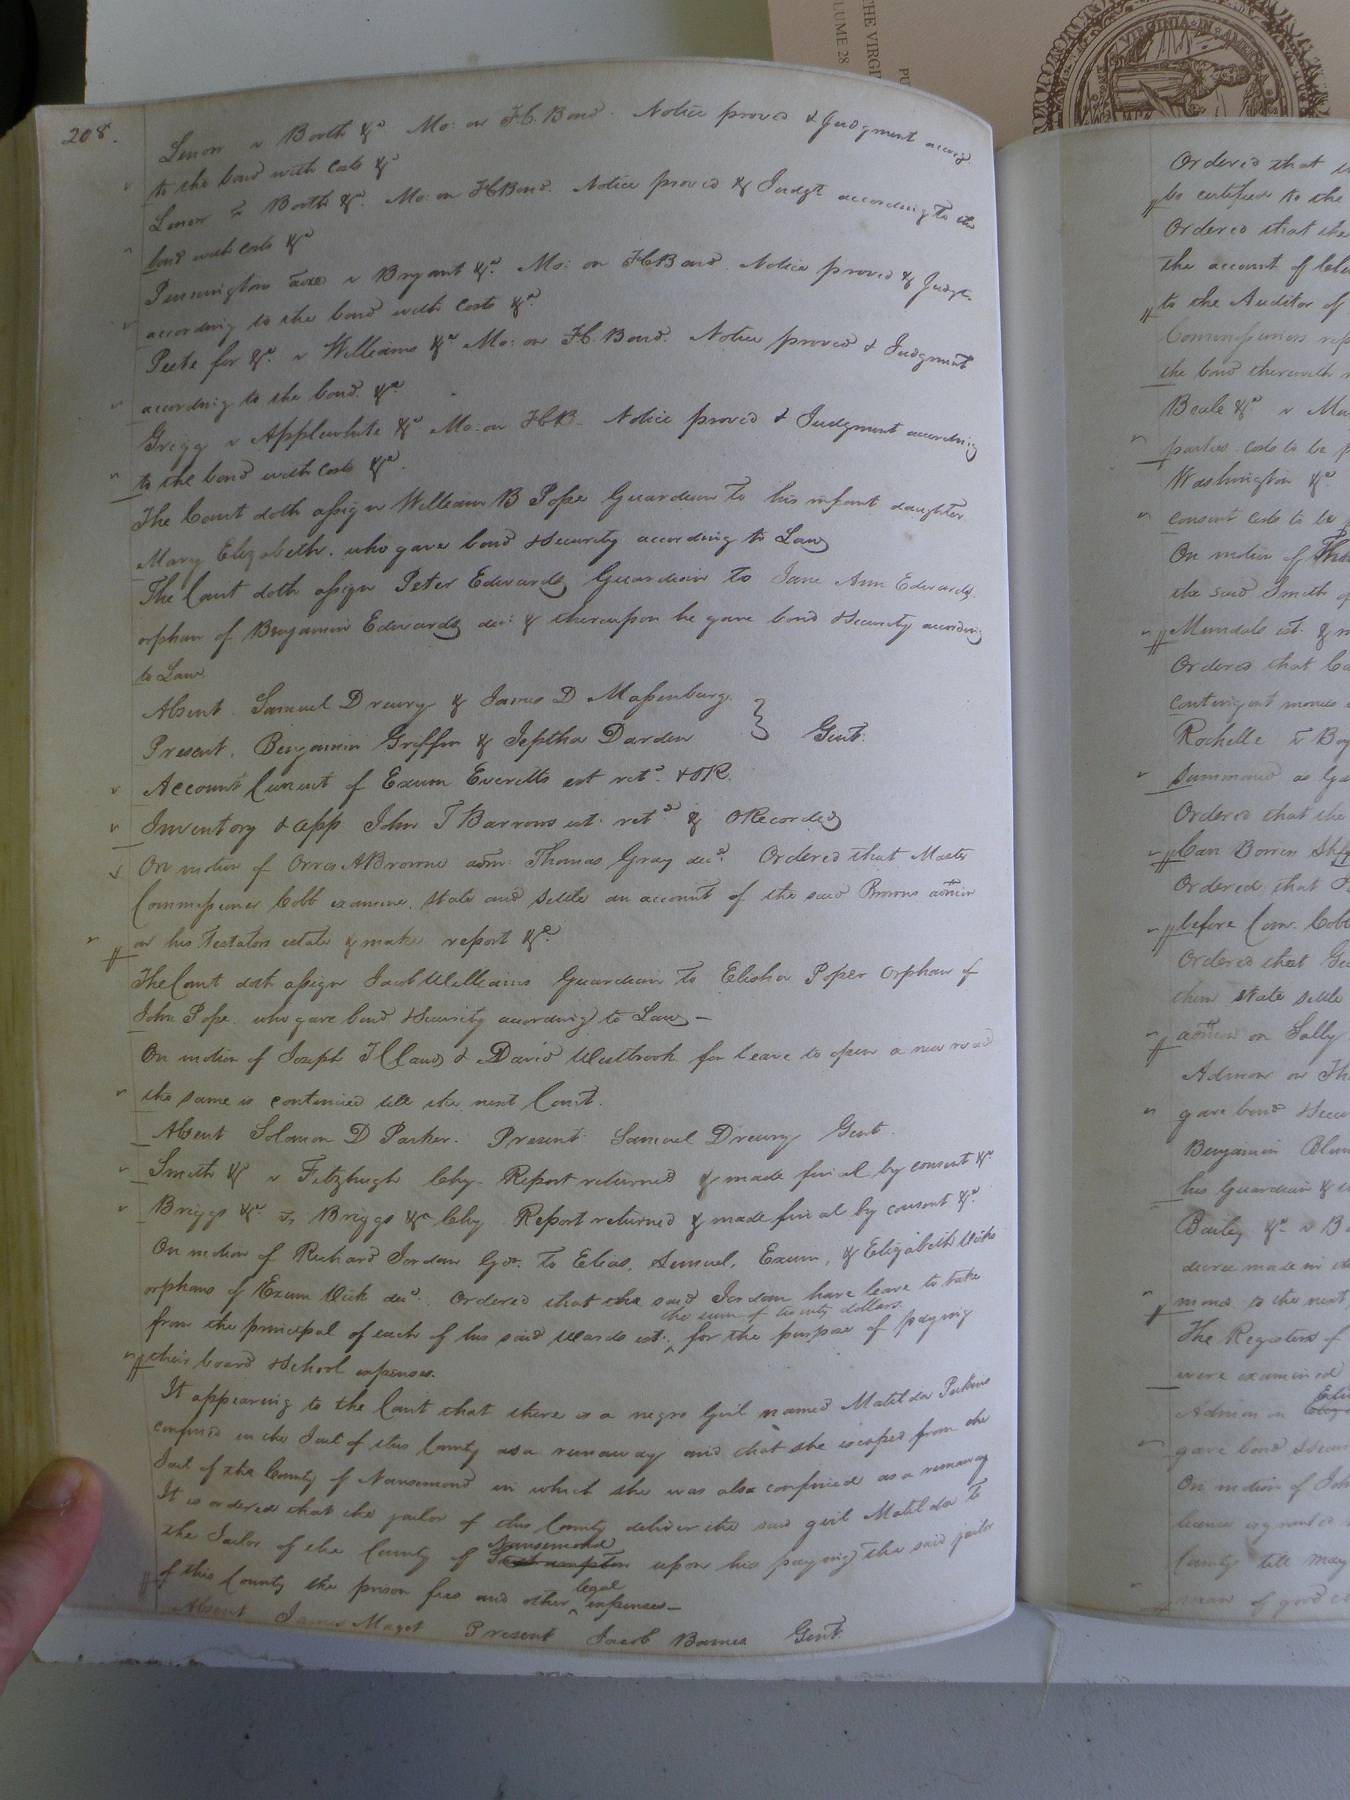 208.
Lenow v Booth &c Mo: on F.H. Bond. Notice proved & Judgment accordg
to the bond with costs &c
Lenow vs Booth &c. Mo: on FHBond. Notice proved & Judgt according to the
bond with costs &c
Pennington v Bryant &c. Mo: on FHBond. Notice proved & Judgt.
according to the bond with costs &c
Peete for &c. v Williams &c Mo: on F.H. Bond. Notice proved & Judgment
according to the bond. &c
Grigg v Applewhite &c Mo: on FHB. Notice proved & Judgment according
to the bond with costs &c.
The Court doth assign William B Pope Guardian to his infant daughter
Mary Elizabeth. who gave bond & Security according to Law
The Court doth assign Peter Edwards Guardian to Jane Ann Edwards.
orphan of Benjamin Edwards dec: & thereupon he gave bond & Security according
to Law
Absent. Samuel Drewry & James D Massenburg.
Present. Benjamin Griffin & Jeptha Darden } Gent.
Account Current of Exum Everetts est retd. & OR.
Inventory & app John T Barrons est. retd & ORecorded
On motion of Orris A Browne adm: Thomas Gray decd. Ordered that Master
Commissioner Cobb examine, state and settle an account of the said Browns admon
on his Testators estate & make report &c
The Court doth assign Jacob Williams Guardian to Elisha Pope Orphan of
John Pope. who gave bond & Security according to Law —
On motion of Joseph & David Westbrook for leave to open a new road
the same is continued till the next Court.
Absent Solomon D Parker. Present Samuel Drewry Gent.
Smith &c v Fitzhugh Chy. Report returned & made final by consent &c
Briggs &c. vs Briggs &c Chy Report returned & made final by consent &c.
On motion of Richard Jordan Gdn. to Elias, Samuel, Exum, & Elizabeth Vicks
orphans of Exum Vick decd. Ordered that the said Jordan have leave to take
the sum of twenty dollars
from the principal of each of his said Wards est: ^ for the purpose of paying
their board & School expenses.
It appearing to the Court that there is a negro Girl named Matilda Perkins
confined in the Jail of this County as a runaway and that she escaped from the
Jail of the County of Nansemond in which she was also confined as a runaway
It is ordered that the jailor of this County deliver the said girl Matilda to
Nansemond
the Jailor of the County of Southampton upon his paying the said jailor
legal
of this County the prison fees and other ^ expenses —
Absent James Maget Present Jacob Barnes Gent.
THE VIRGI
OLUME 28
PU
VIRGINIA IN AMERI
Ordered that
be certified to the
Ordered that the
the account of
to the Auditor of
Commissioners rep
the bond therewith
Beale &c v
parties costs to be
Washington &c
consent costs to be
On motion of
the said Smith
Mundals est. &
Ordered that
contingent monies
Rochelle vs
Summoned as
Ordered that the
Ordered that
before Com. Cobb
Ordered that
them state settle
admon on Sally
Admon on
gave bond & Secu
Benjamin
his Guardian &
Bailey &c v
decree made in
to the next
The Registers of
were examined
Admon on
gave bond & Secur
On motion of
licence is granted
County till may
man of good